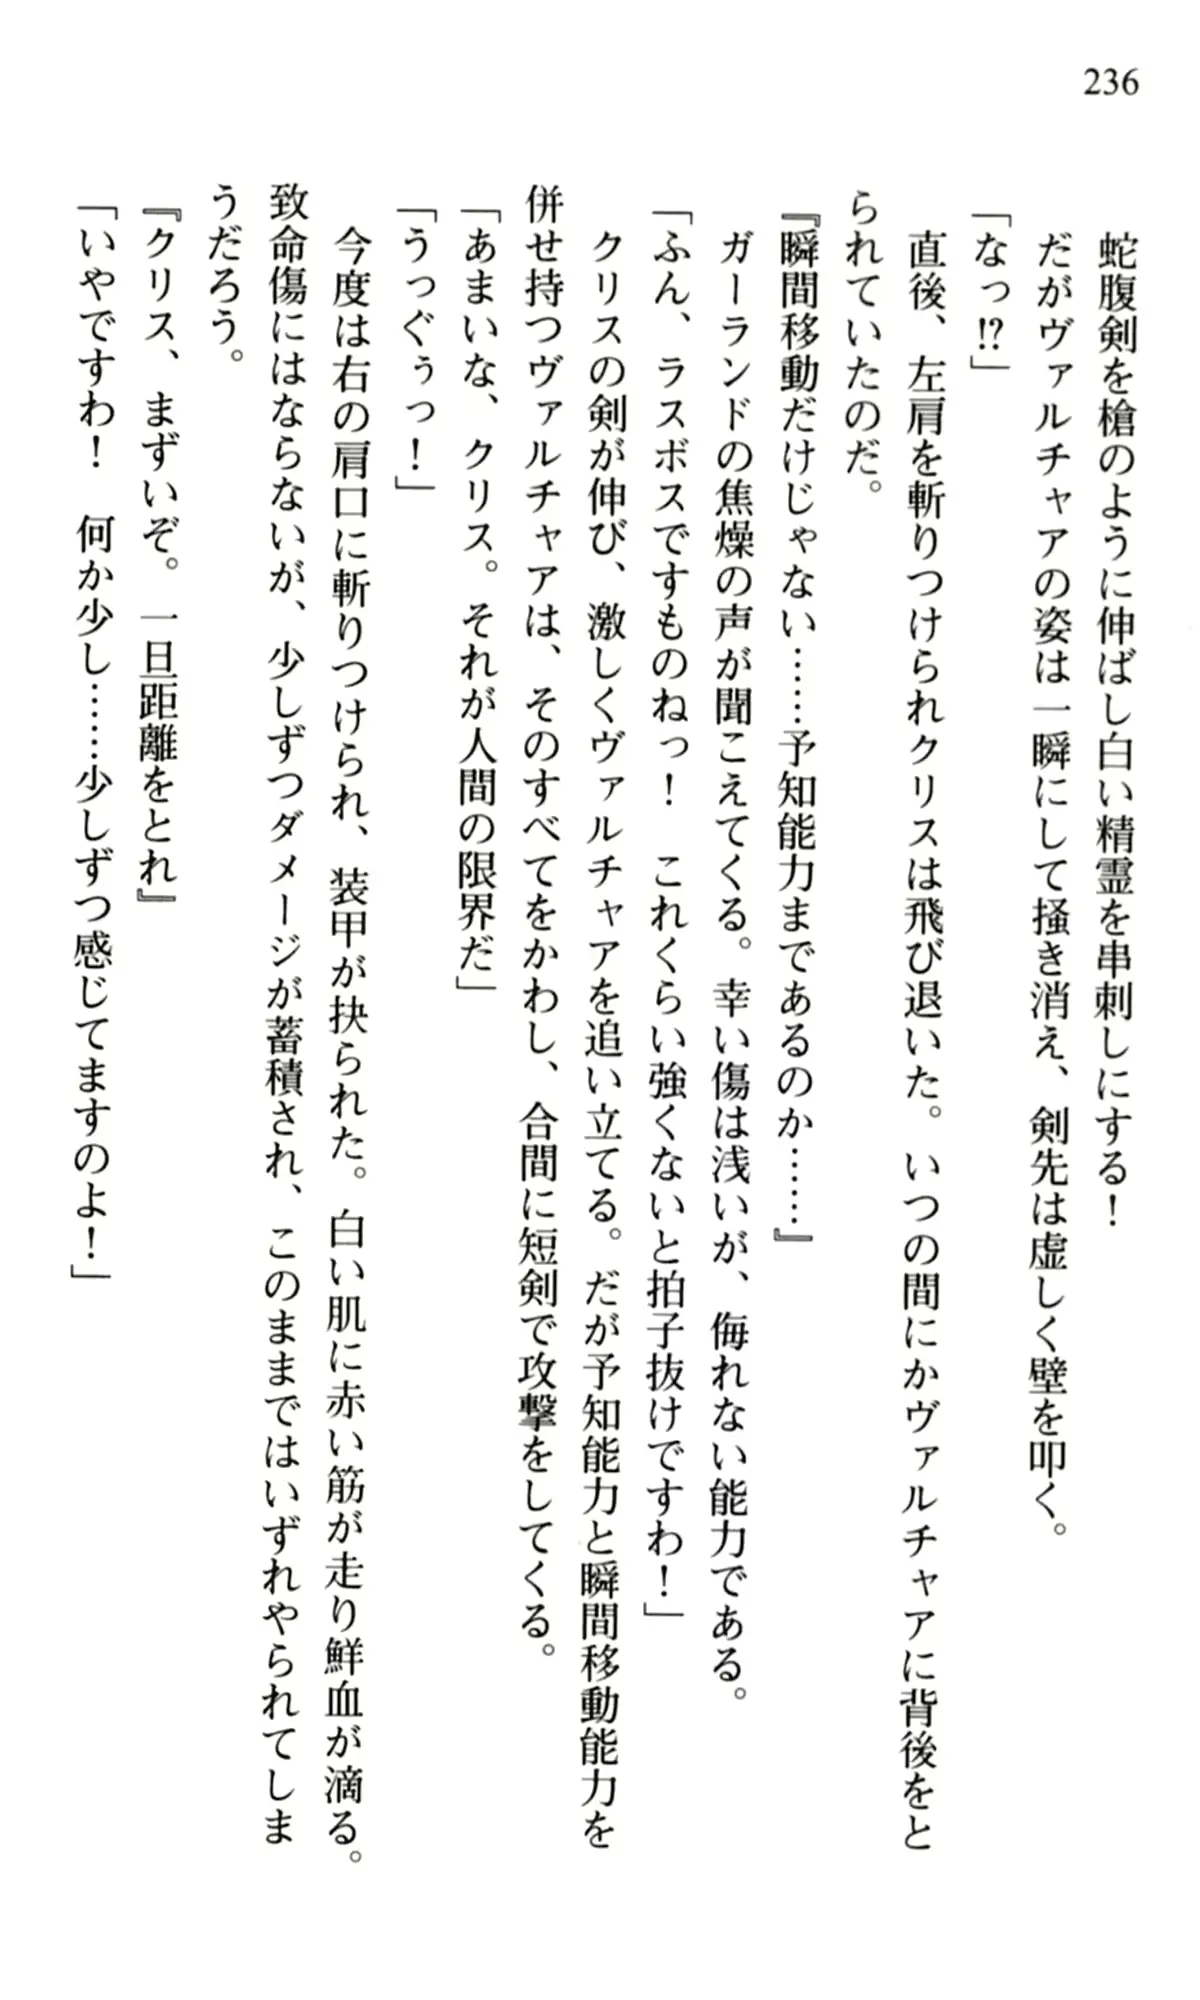 236
　蛇腹剣を槍のように伸ばし白い精霊を串刺しにする！
　だがヴァルチャアの姿は一瞬にして掻き消え、剣先は虚しく壁を叩く。
「なっ!?」
　直後、左肩を斬りつけられクリスは飛び退いた。いつの間にかヴァルチャアに背後をと
られていたのだ。
『瞬間移動だけじゃない……予知能力まであるのか……』
　ガーランドの焦燥の声が聞こえてくる。幸い傷は浅いが、侮れない能力である。
「ふん、ラスボスですものねっ！　これくらい強くないと拍子抜けですわ！」
　クリスの剣が伸び、激しくヴァルチャアを追い立てる。だが予知能力と瞬間移動能力を
併せ持つヴァルチャアは、そのすべてをかわし、合間に短剣で攻撃をしてくる。
「あまいな、クリス。それが人間の限界だ」
「うっぐぅっ！」
　今度は右の肩口に斬りつけられ、装甲が抉られた。白い肌に赤い筋が走り鮮血が滴る。
致命傷にはならないが、少しずつダメージが蓄積され、このままではいずれやられてしま
うだろう。
『クリス、まずいぞ。一旦距離をとれ』
「いやですわ！　何か少し……少しずつ感じてますのよ！」